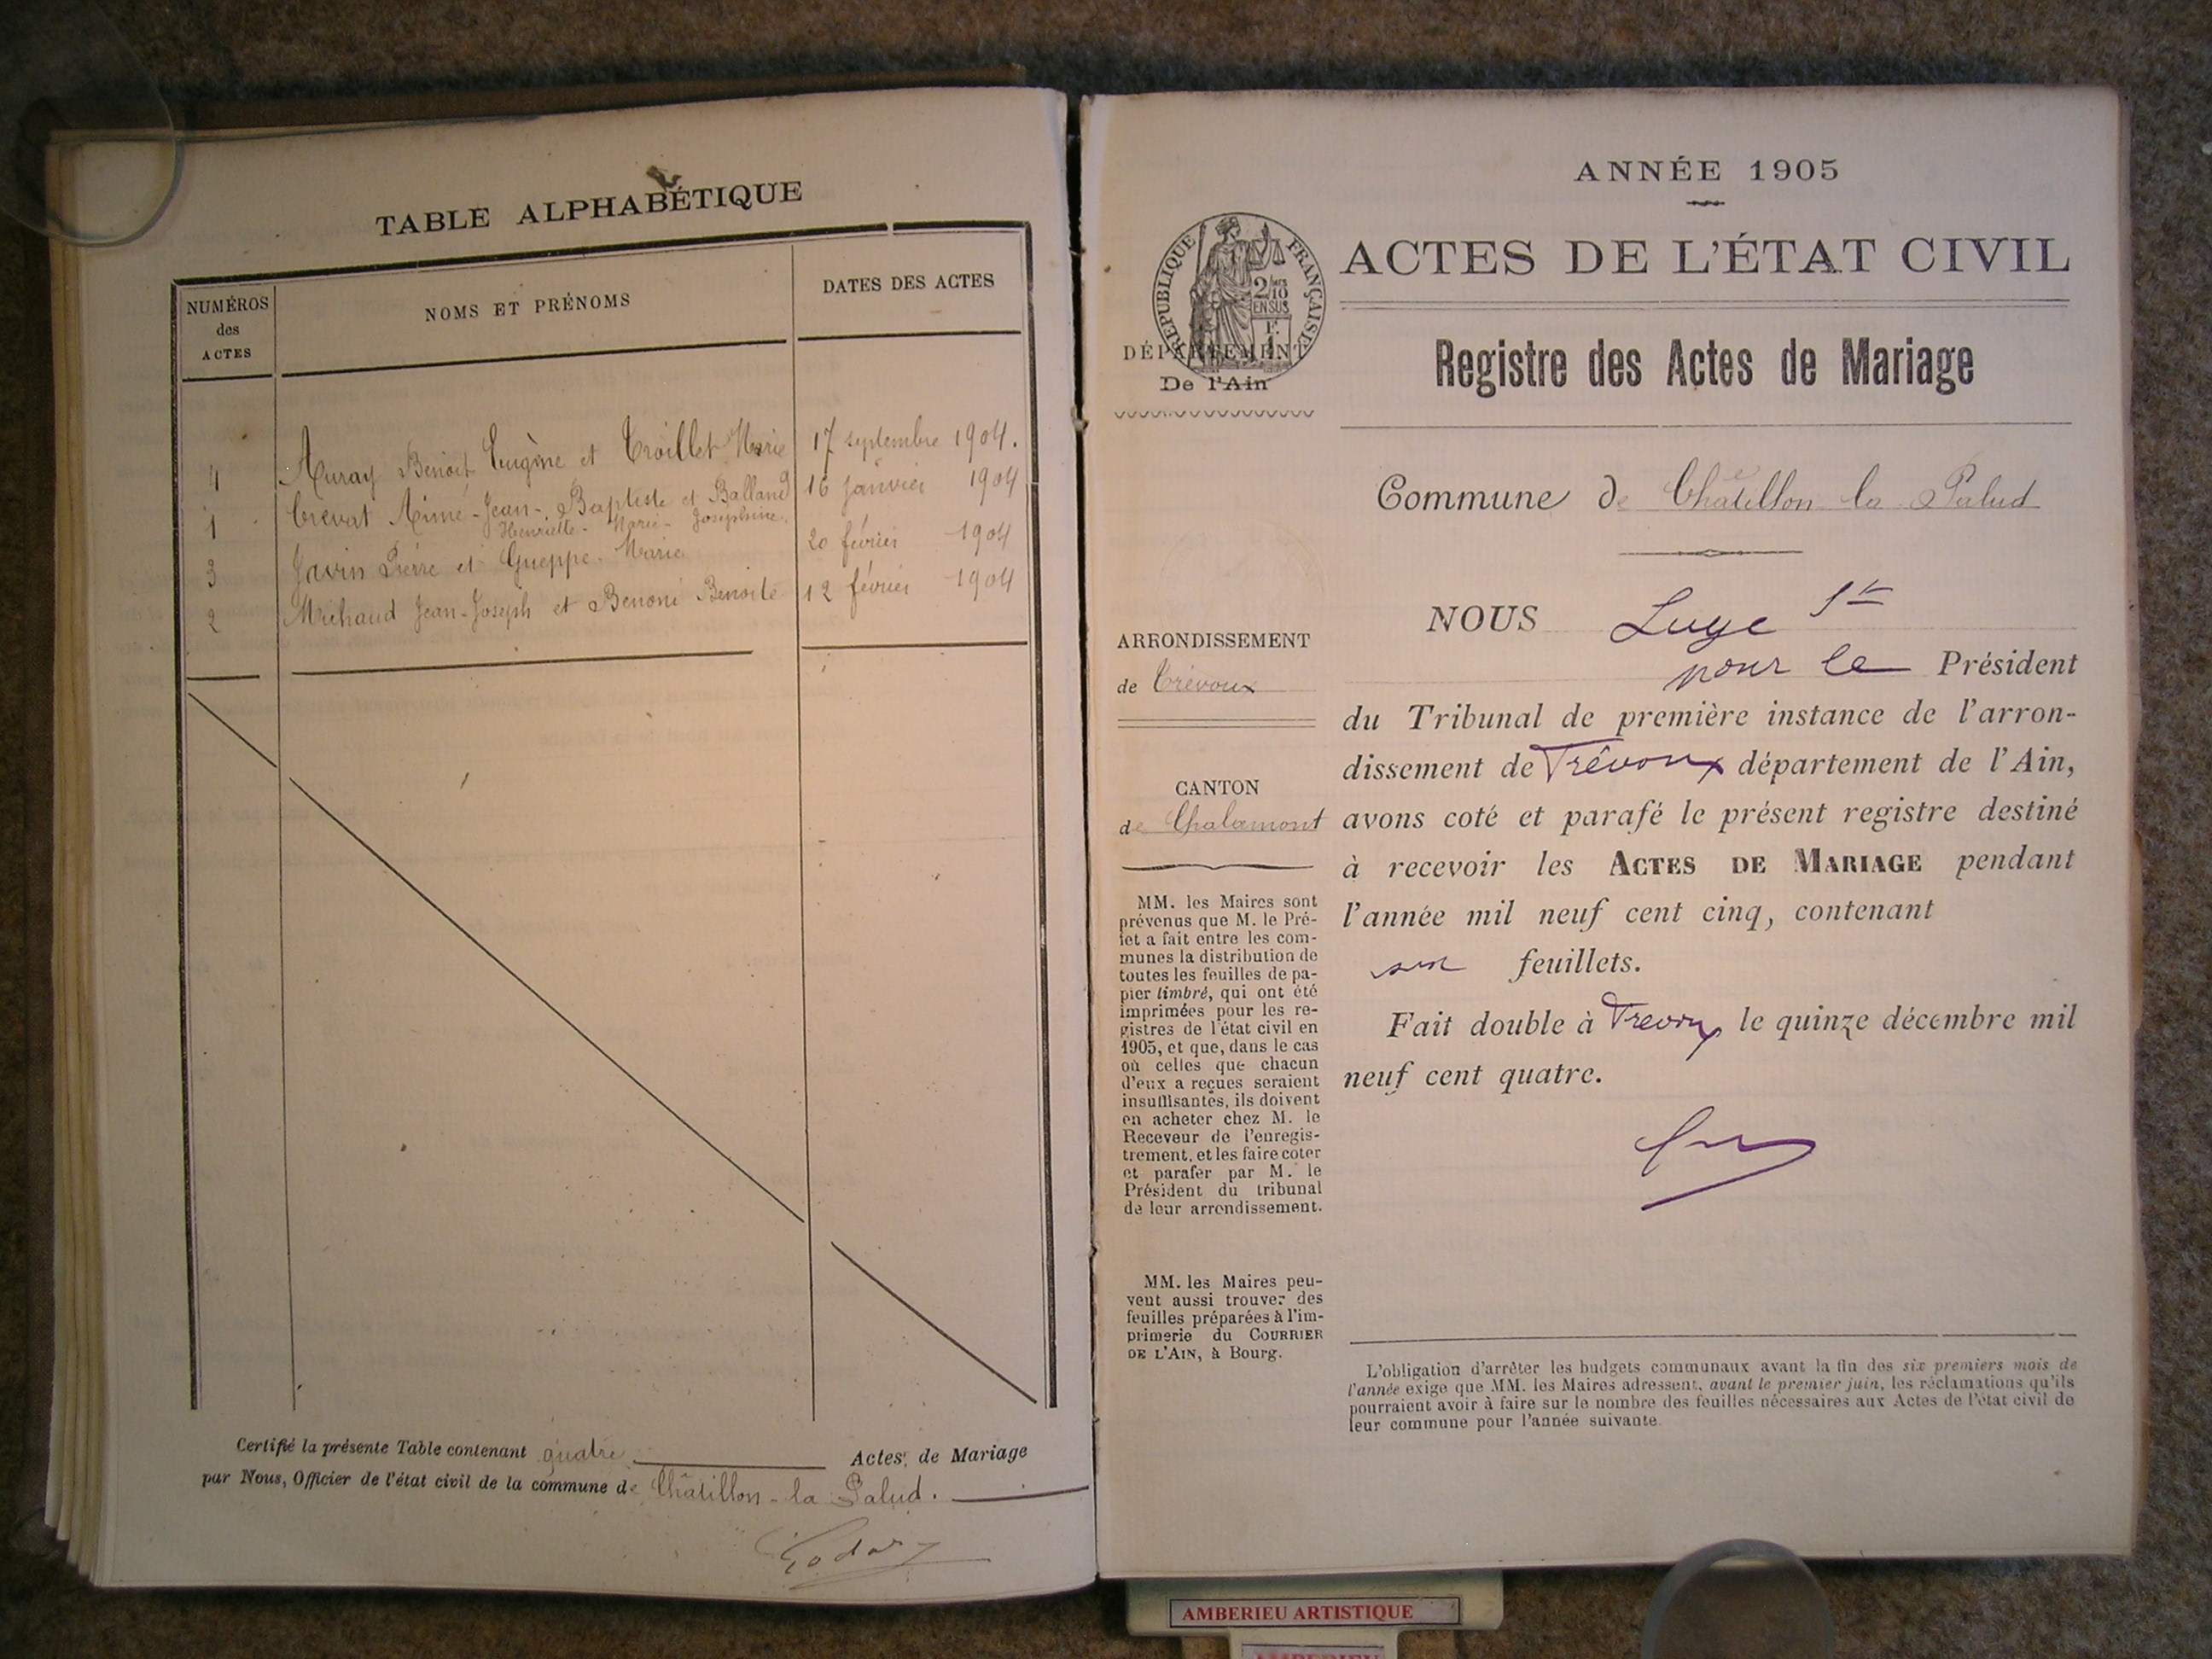 TABLE ALPHABÉTIQUE
NUMÉROS
des
ACTES
NOMS ET PRÉNOMS
DATES DES ACTES
4 Auray Benoit Eugène et Troillet Marie 17 septembre 1904.
1 Crevat Aimé-Jean-Baptiste et Balland 16 janvier 1904
Henriette-Marie-Joséphine.
3 Javin Pierre et Gueppe Marie 20 février 1904
2 Michaud Jean-Joseph et Benoni Benoite 12 février 1904
Certifié la présente Table contenant quatre Actes de Mariage
par Nous, Officier de l'état civil de la commune de Châtillon-la Palud.
ANNÉE 1905
RÉPUBLIQUE FRANÇAISE
2/10
EN SUS
F.
1
DÉPARTEMENT
De l'Ain
ACTES DE L'ÉTAT CIVIL
Registre des Actes de Mariage
Commune de Châtillon la Palud
ARRONDISSEMENT
de Trévoux
CANTON
de Chalamont
MM. les Maires sont
prévenus que M. le Pré-
fet a fait entre les com-
munes la distribution de
toutes les feuilles de pa-
pier timbré, qui ont été
imprimées pour les re-
gistres de l'état civil en
1905, et que, dans le cas
où celles que chacun
d'eux a reçues seraient
insuffisantes, ils doivent
en acheter chez M. le
Receveur de l'enregis-
trement, et les faire coter
et parafer par M. le
Président du tribunal
de leur arrondissement.
MM. les Maires peu-
vent aussi trouver des
feuilles préparées à l'im-
primerie du COURRIER
DE L'AIN, à Bourg.
NOUS
pour le Président
du Tribunal de première instance de l'arron-
dissement de Trévoux département de l'Ain,
avons coté et parafé le présent registre destiné
à recevoir les ACTES DE MARIAGE pendant
l'année mil neuf cent cinq, contenant
feuillets.
Fait double à Trevoux le quinze décembre mil
neuf cent quatre.
L'obligation d'arrêter les budgets communaux avant la fin des six premiers mois de
l'année exige que MM. les Maires adressent, avant le premier juin, les réclamations qu'ils
pourraient avoir à faire sur le nombre des feuilles nécessaires aux Actes de l'état civil de
leur commune pour l'année suivante.
AMBERIEU ARTISTIQUE
AMBERIEU